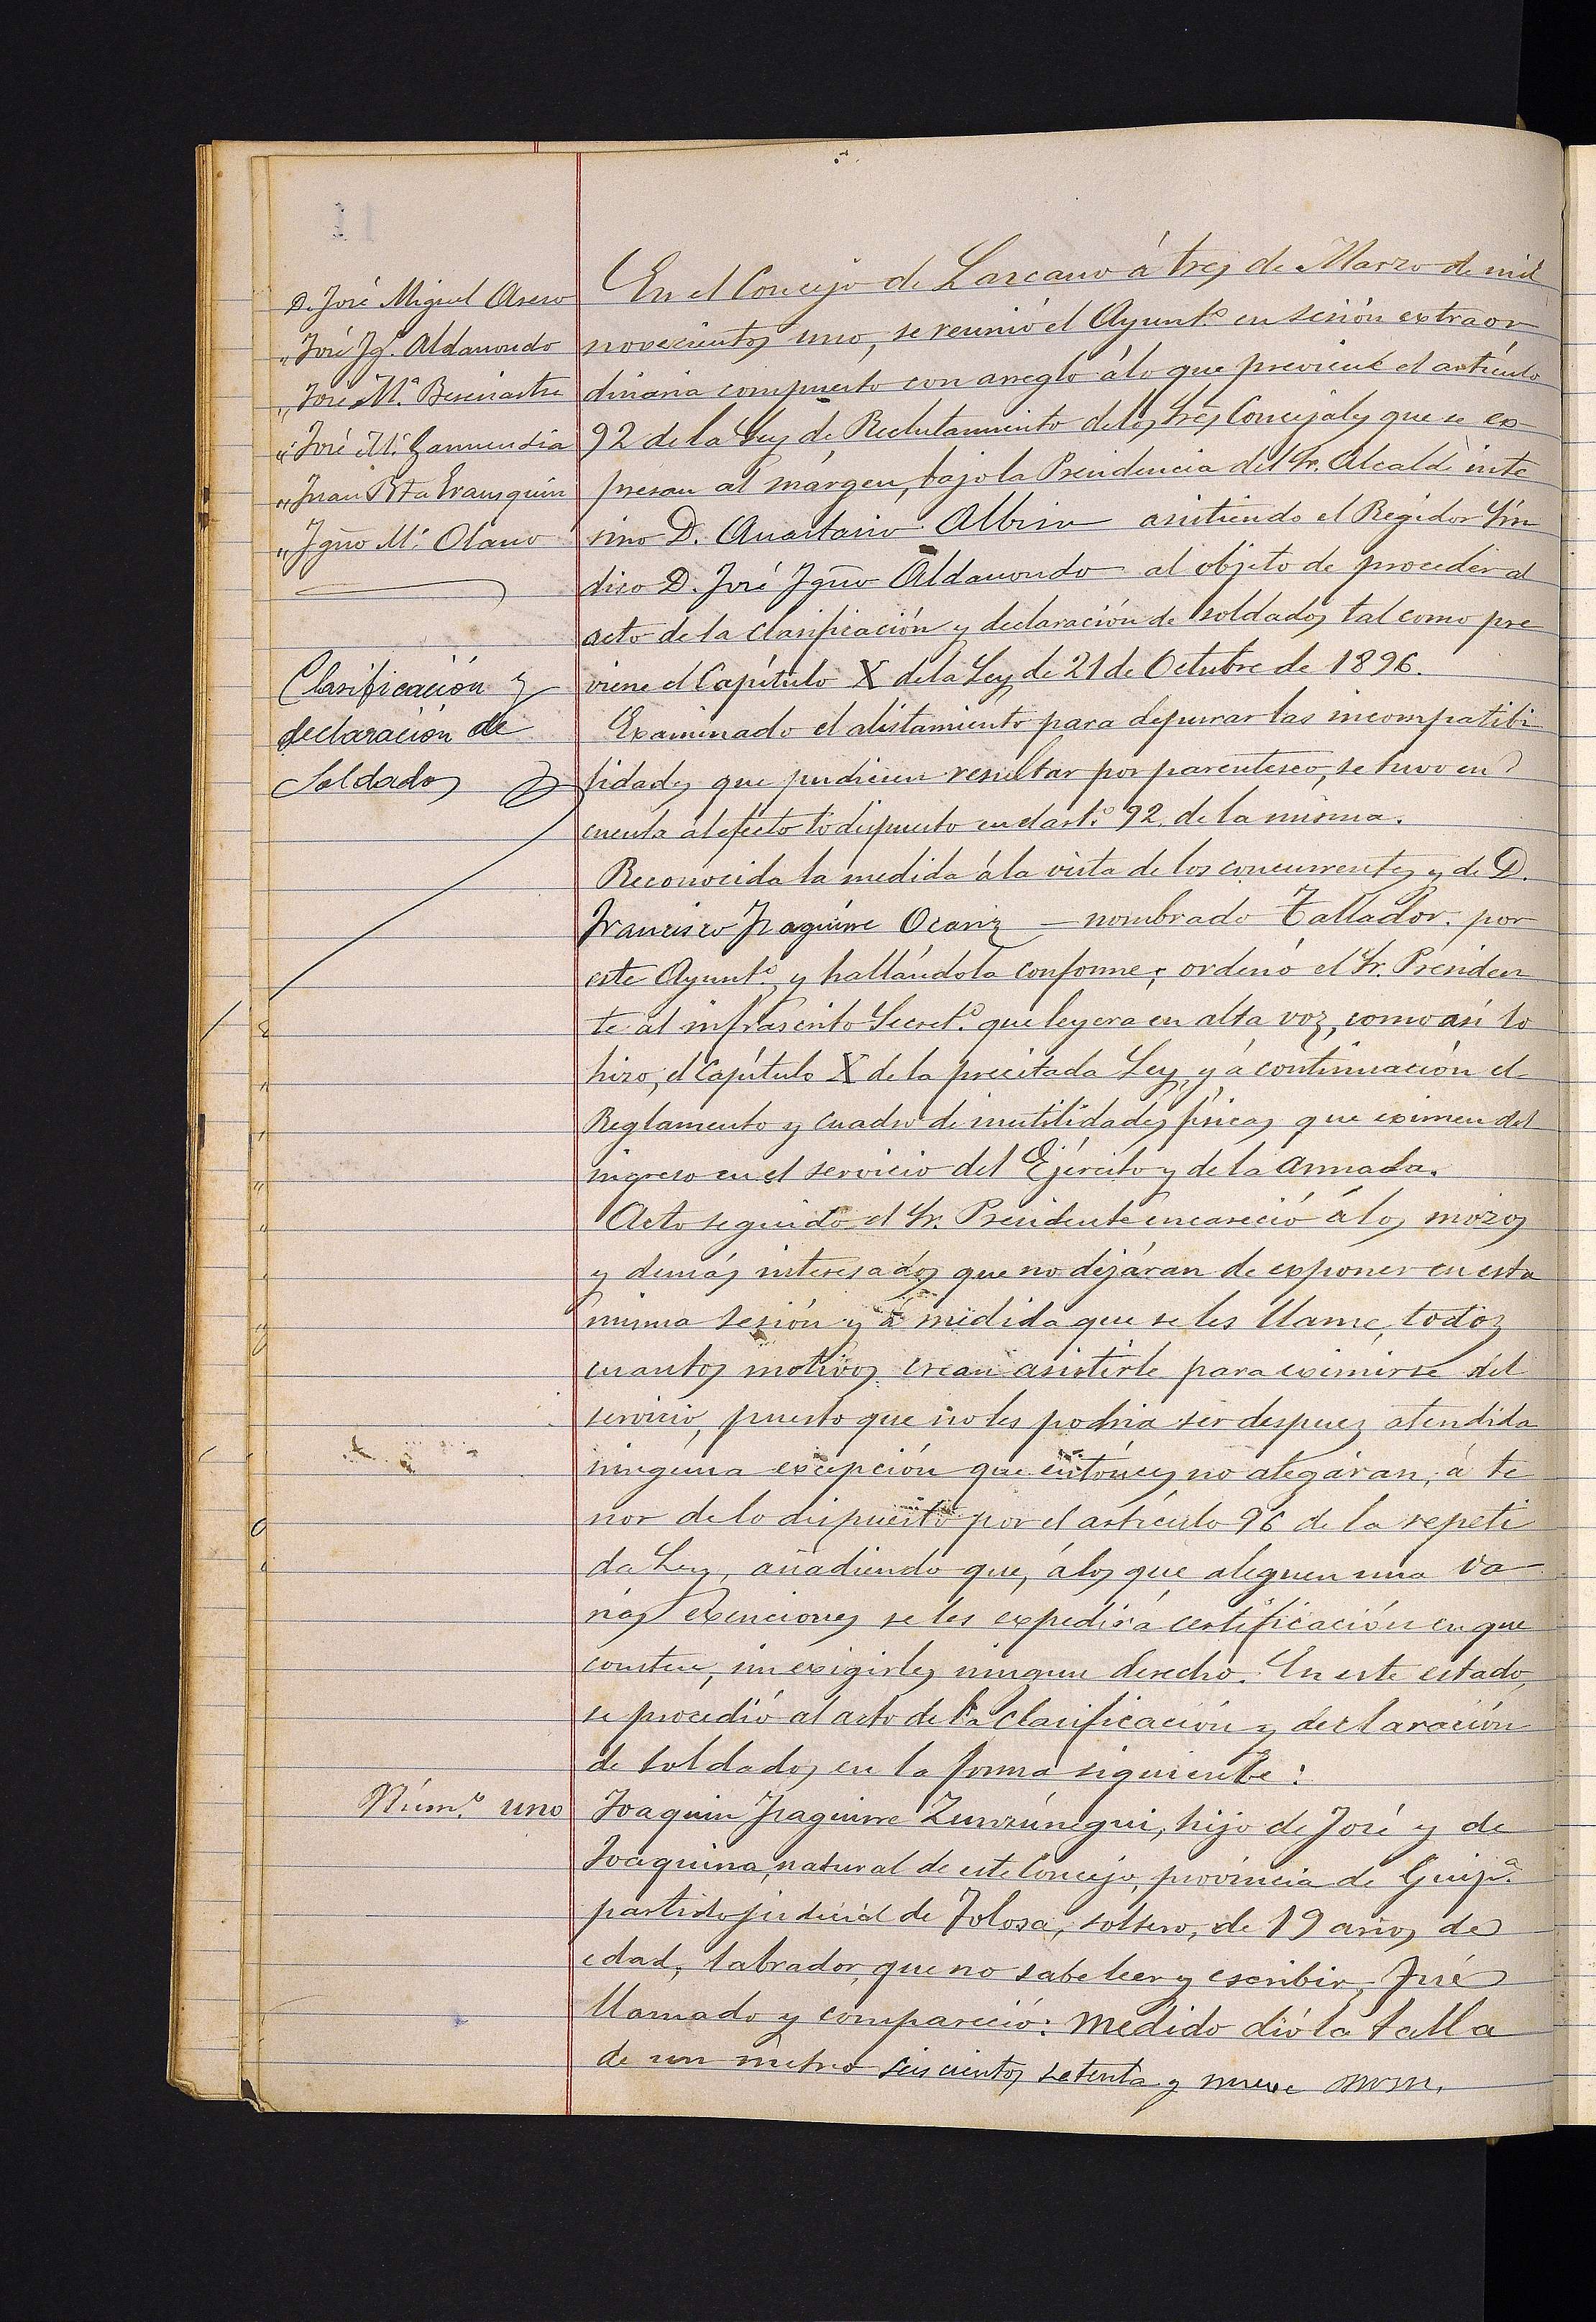 D. José Miguel Asero
" José Ig.º Aldanondo
" José M.ª Beseiartu
" José M.ª Garmendia
" Juan Bta Iransquin
" Igño M.ª Olano
Clasificación y
declaración de
Soldados
En el Concejo de Lazcano á tres de Marzo de mil
novecientos uno, se reunió el Ayunt.º en sesión extraor
dinaria compuesto con arreglo á lo que previene el artículo
92 de la Ley de Reclutamiento de los Sres Concejales que se ex-
presan al márgen, bajo la Presidencia del Sr. Alcalde inte
rino D. Anastasio Albisu asistiendo el Regidor Sín
dico D. José Igño Aldanondo al objeto de proceder al
acto de la clasificación y declaración de soldados tal como pre
viene el Capítulo X de la Ley de 21 de Octubre de 1896.
Examinado el alistamiento para depurar las incompatibi
lidades que pudieren resultar por parentesco, se tuvo en
cuenta al efecto lo dispuesto en el art.º 92 de la misma.
Reconocida la medida á la vista de los concurrentes y de D.
Francisco Iraguirre Ocariz — nombrado Tallador por
este Ayunt.º y hallándola conforme, ordenó el Sr. Presiden
te al infrascrito Secret.º que leyera en alta voz, como así lo
hizo, el Capítulo X de la precitada Ley, y á continuación el
Reglamento y cuadro de inutilidades físicas que eximen del
ingreso en el servicio del Ejército y de la Armada.
Acto seguido el Sr. Presidente encareció á los mozos
y demás interesados que no dejáran de exponer en esta
misma sesión y á medida que se les llame, todos
cuantos motivos crean asistirle para eximirse del
servicio, puesto que no les podria ser despues atendida
ninguna excepción que entónces no alegáran, á te
nor de lo dispuesto por el artículo 96 de la repeti
da Ley, añadiendo que, á los que aleguen una va
rias exenciones se les expedirá certificación en que
conste, sin exigirles ningun derecho. En este estado,
se procedió al acto de la clasificación y declaración
de soldados en la forma siguiente:
Núm.º uno
Joaquin Iraguirre Zunzúnegui, hijo de José y de
Joaquina, natural de este Concejo, provincia de Guip.ª
partido judicial de Tolosa, soltero, de 19 años de
edad, labrador, que no sabe leer y escribir, Fué
llamado y compareció: Medido dió la talla
de un metro seiscientos setenta y nueve mm.